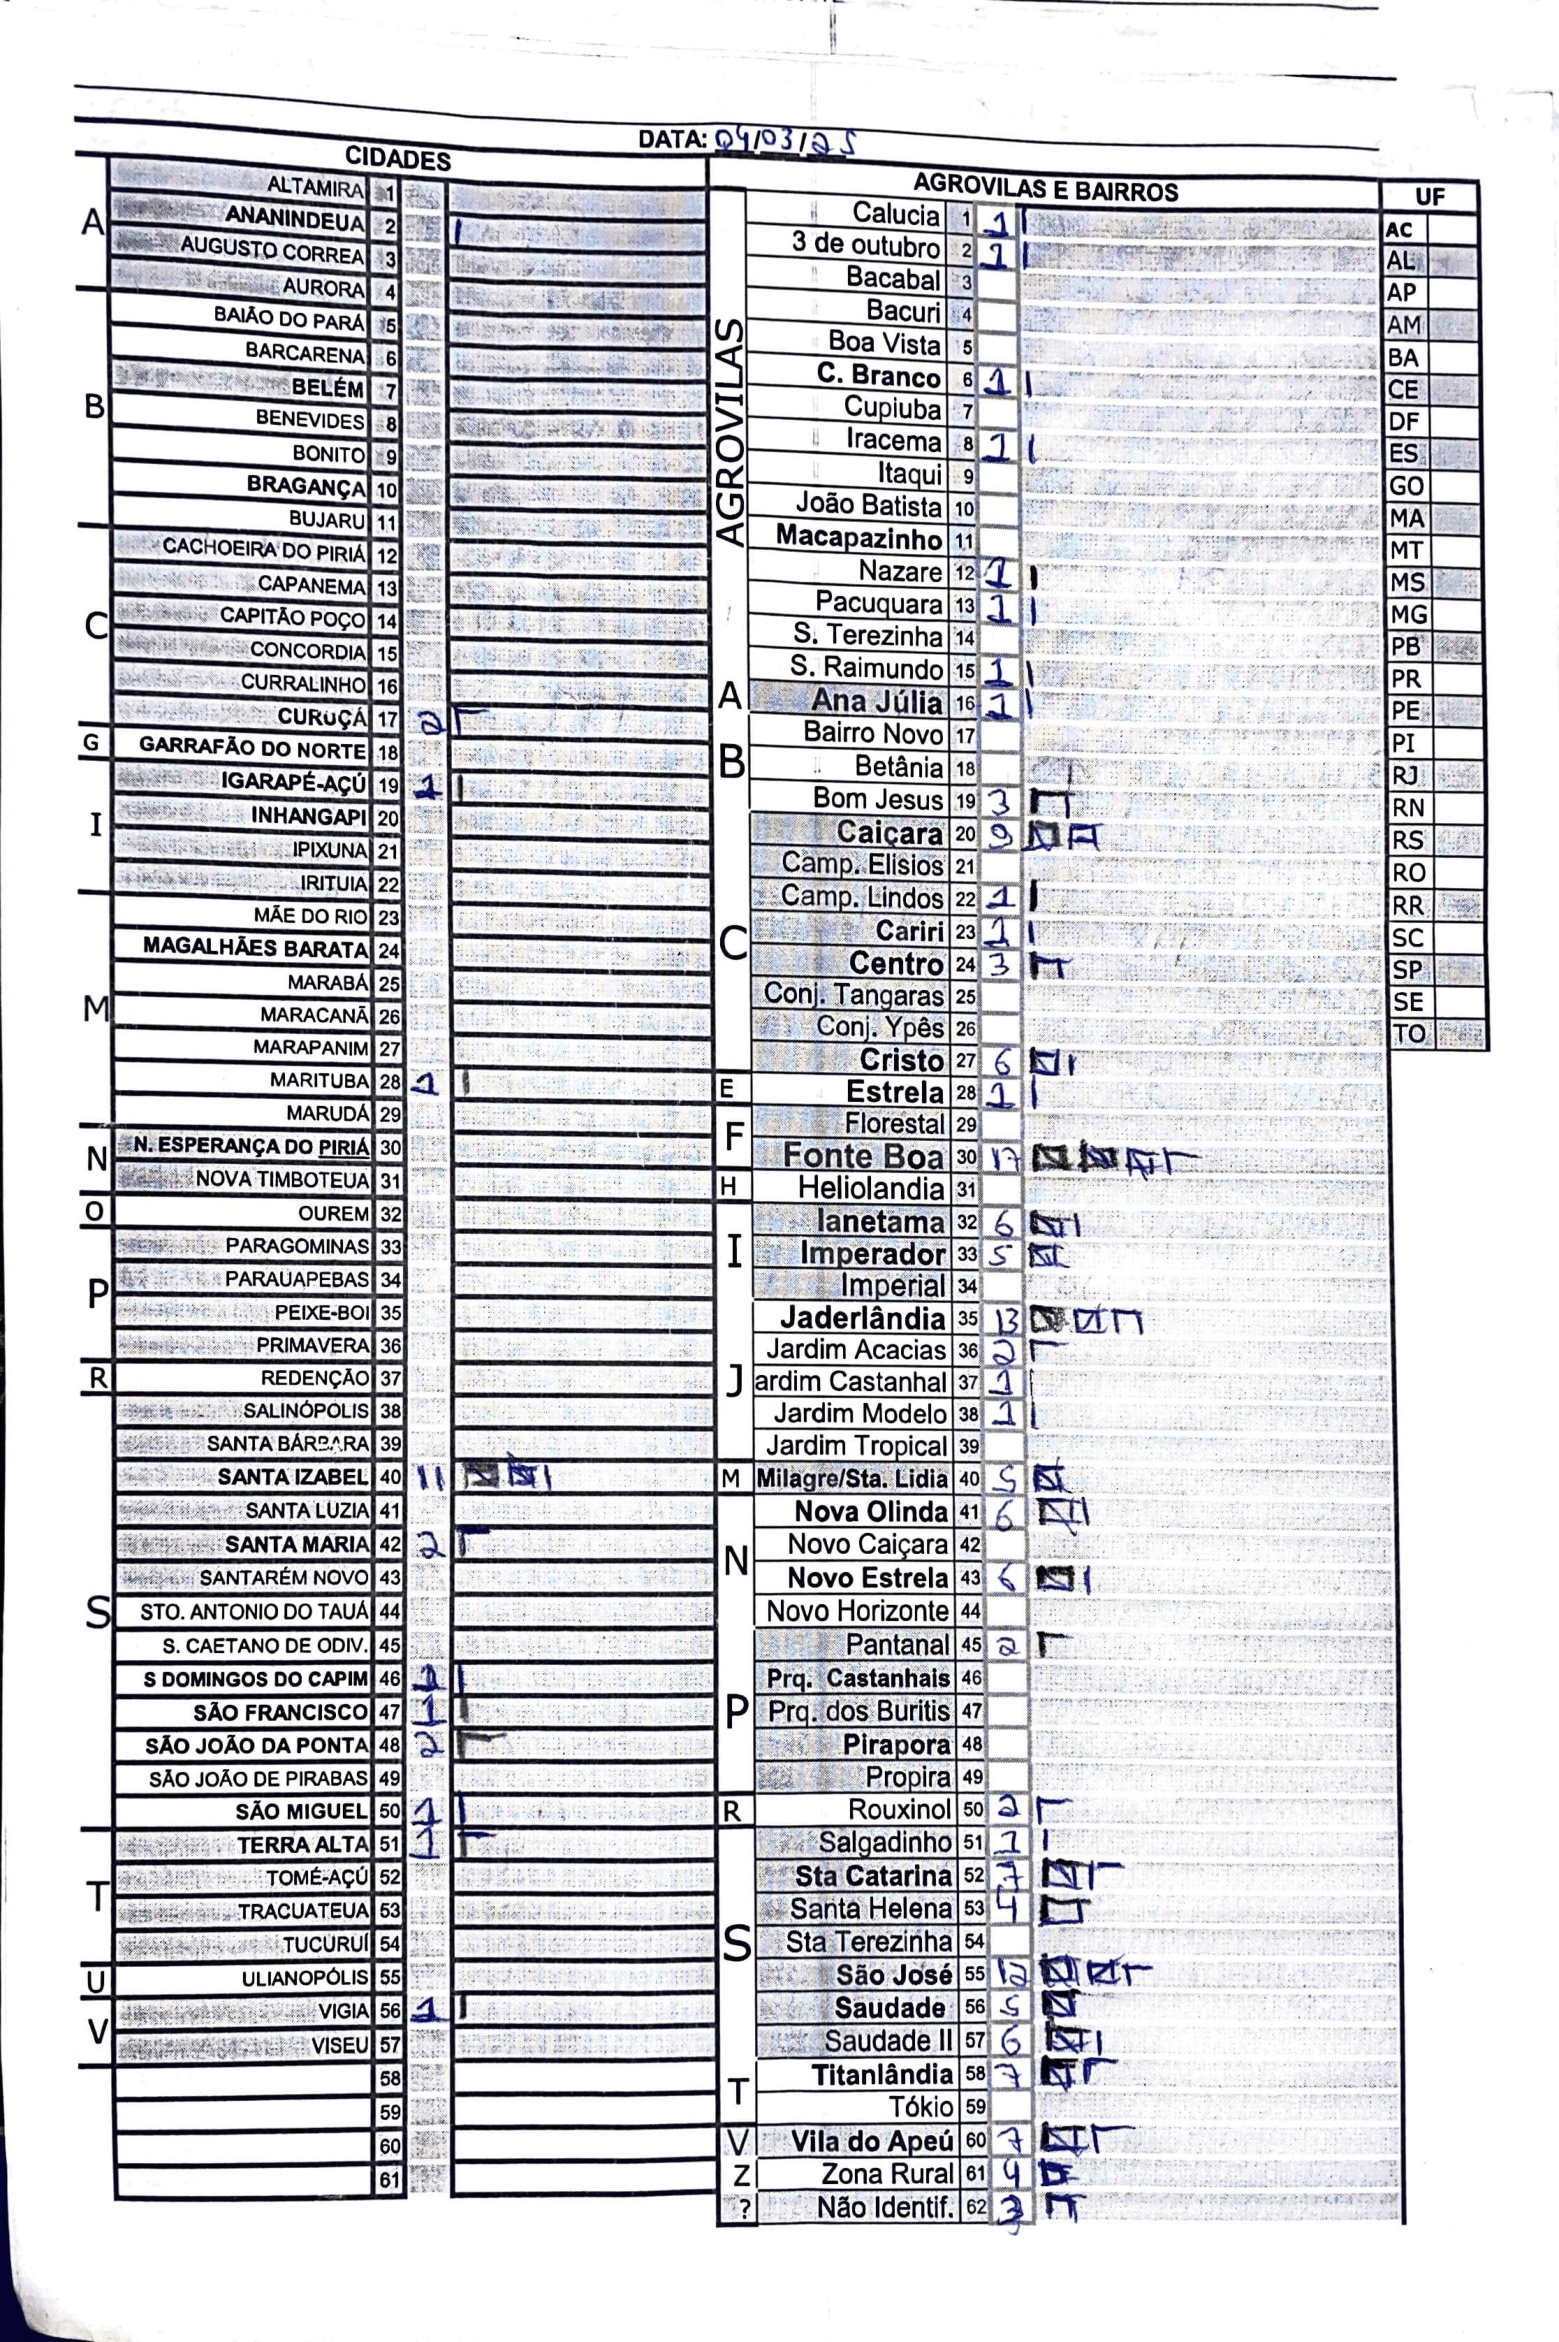 DATA: 04/03/25
CIDADES
A
ALTAMIRA 1
ANANINDEUA 2
AUGUSTO CORREA 3
AURORA 4
B
BAIÃO DO PARÁ 5
BARCARENA 6
BELÉM 7
BENEVIDES 8
BONITO 9
BRAGANÇA 10
BUJARU 11
C
CACHOEIRA DO PIRIÁ 12
CAPANEMA 13
CAPITÃO POÇO 14
CONCORDIA 15
CURRALINHO 16
CURUÇÁ 17 2
G
GARRAFÃO DO NORTE 18
I
IGARAPÉ-AÇÚ 19 1
INHANGAPI 20
IPIXUNA 21
IRITUIA 22
M
MÃE DO RIO 23
MAGALHÃES BARATA 24
MARABÁ 25
MARACANÃ 26
MARAPANIM 27
MARITUBA 28 1
MARUDÁ 29
N
N. ESPERANÇA DO PIRIÁ 30
NOVA TIMBOTEUA 31
O
OUREM 32
P
PARAGOMINAS 33
PARAUAPEBAS 34
PEIXE-BOI 35
PRIMAVERA 36
R
REDENÇÃO 37
S
SALINÓPOLIS 38
SANTA BÁRBARA 39
SANTA IZABEL 40 11
SANTA LUZIA 41
SANTA MARIA 42 2
SANTARÉM NOVO 43
STO. ANTONIO DO TAUÁ 44
S. CAETANO DE ODIV. 45
S DOMINGOS DO CAPIM 46 1
SÃO FRANCISCO 47 1
SÃO JOÃO DA PONTA 48 2
SÃO JOÃO DE PIRABAS 49
SÃO MIGUEL 50 1
T
TERRA ALTA 51 1
TOMÉ-AÇÚ 52
TRACUATEUA 53
TUCURUÍ 54
U
ULIANOPÓLIS 55
V
VIGIA 56 1
VISEU 57
58
59
60
61
AGROVILAS E BAIRROS
AGROVILAS
Calucia 1 1
3 de outubro 2 1
Bacabal 3
Bacuri 4
Boa Vista 5
C. Branco 6 1
Cupiuba 7
Iracema 8 1
Itaqui 9
João Batista 10
Macapazinho 11
Nazare 12 1
Pacuquara 13 1
S. Terezinha 14
S. Raimundo 15 1
A
Ana Júlia 16 1
B
Bairro Novo 17
Betânia 18
Bom Jesus 19 3
C
Caiçara 20 9
Camp. Elisios 21
Camp. Lindos 22 1
Cariri 23 1
Centro 24 3
Conj. Tangaras 25
Conj. Ypês 26
Cristo 27 6
E
Estrela 28 1
F
Florestal 29
Fonte Boa 30 17
H
Heliolandia 31
I
Ianetama 32 6
Imperador 33 5
Imperial 34
J
Jaderlândia 35 13
Jardim Acacias 36 2
ardim Castanhal 37 1
Jardim Modelo 38 1
Jardim Tropical 39
M
Milagre/Sta. Lidia 40 5
N
Nova Olinda 41 6
Novo Caiçara 42
Novo Estrela 43 6
Novo Horizonte 44
P
Pantanal 45 2
Prq. Castanhais 46
Prq. dos Buritis 47
Pirapora 48
Propira 49
R
Rouxinol 50 2
S
Salgadinho 51 1
Sta Catarina 52 7
Santa Helena 53 4
Sta Terezinha 54
São José 55 12
Saudade 56 5
Saudade II 57 6
T
Titanlândia 58 7
Tókio 59
V
Vila do Apeú 60 7
Z
Zona Rural 61 4
?
Não Identif. 62 3
UF
AC
AL
AP
AM
BA
CE
DF
ES
GO
MA
MT
MS
MG
PB
PR
PE
PI
RJ
RN
RS
RO
RR
SC
SP
SE
TO